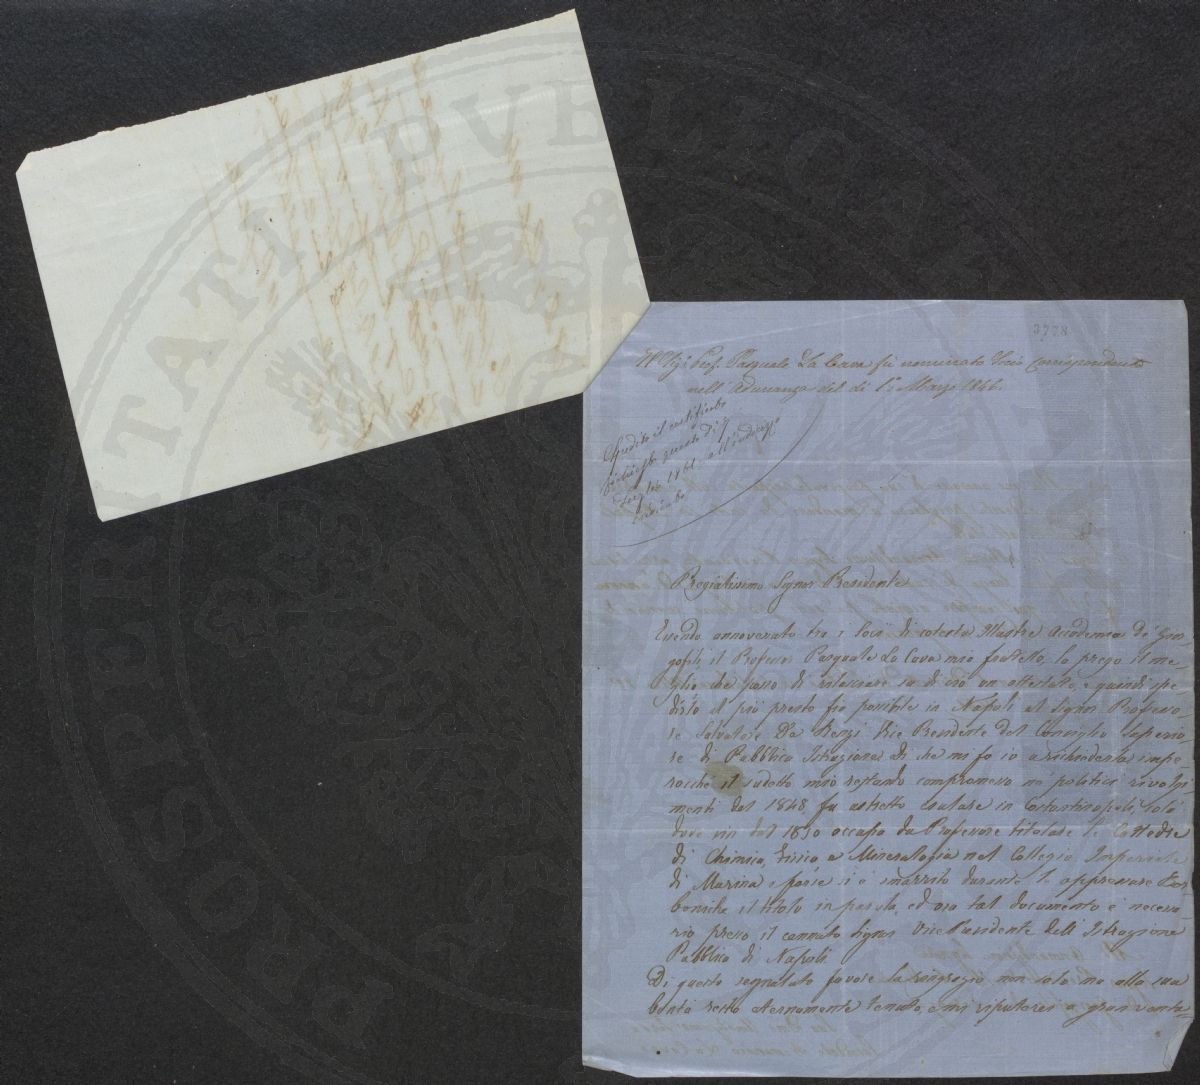 3778
Il Sig: Prof. Pasquale La Cava fù nominato Socio Corrispondente
nell'Adunanza del dì 1.° Marzo 1846.
Spedito il certificato
richiesto questo dì
1861 all'indirizzo
indicato
Pregiatissimo Signor Presidente
Essendo annoverato tra i Soci di cotesta Illustre Accademia de' Geor-
gofili il Professor Pasquale La Cava mio fratello, la prego il me-
glio che posso di rilasciare su di ciò un attestato, e quindi spe-
dirlo il più presto fia possibile in Napoli al Signor Professo-
re Salvatore De Renzi Vice Presidente del Consiglio Superio-
re di Pubblica Istruzione. Di che mi fo io a richiederla impe-
rocchè il sudetto mio restando compromesso ne' politici rivolgi-
menti del 1848 fu astretto esulare in Costantinopoli, colà
dove sin dal 1850 occupa da Professore titolare le Cattedre
di Chimica, Fisica e Mineralogia nel Collegio Imperiale
di Marina e forse si è smarrito durante le oppressure Bor-
boniche il titolo in parola, ed ora tal documento è necessa-
rio presso il cennato Signor Vice Presidente dell'Istruzione
Pubblica di Napoli.
Di questo segnalato favore la ringrazio non solo ma alla sua
bontà resto eternamente tenuto, e mi riputerei a gran vanta-
PROSPERITATI PVBLICAE